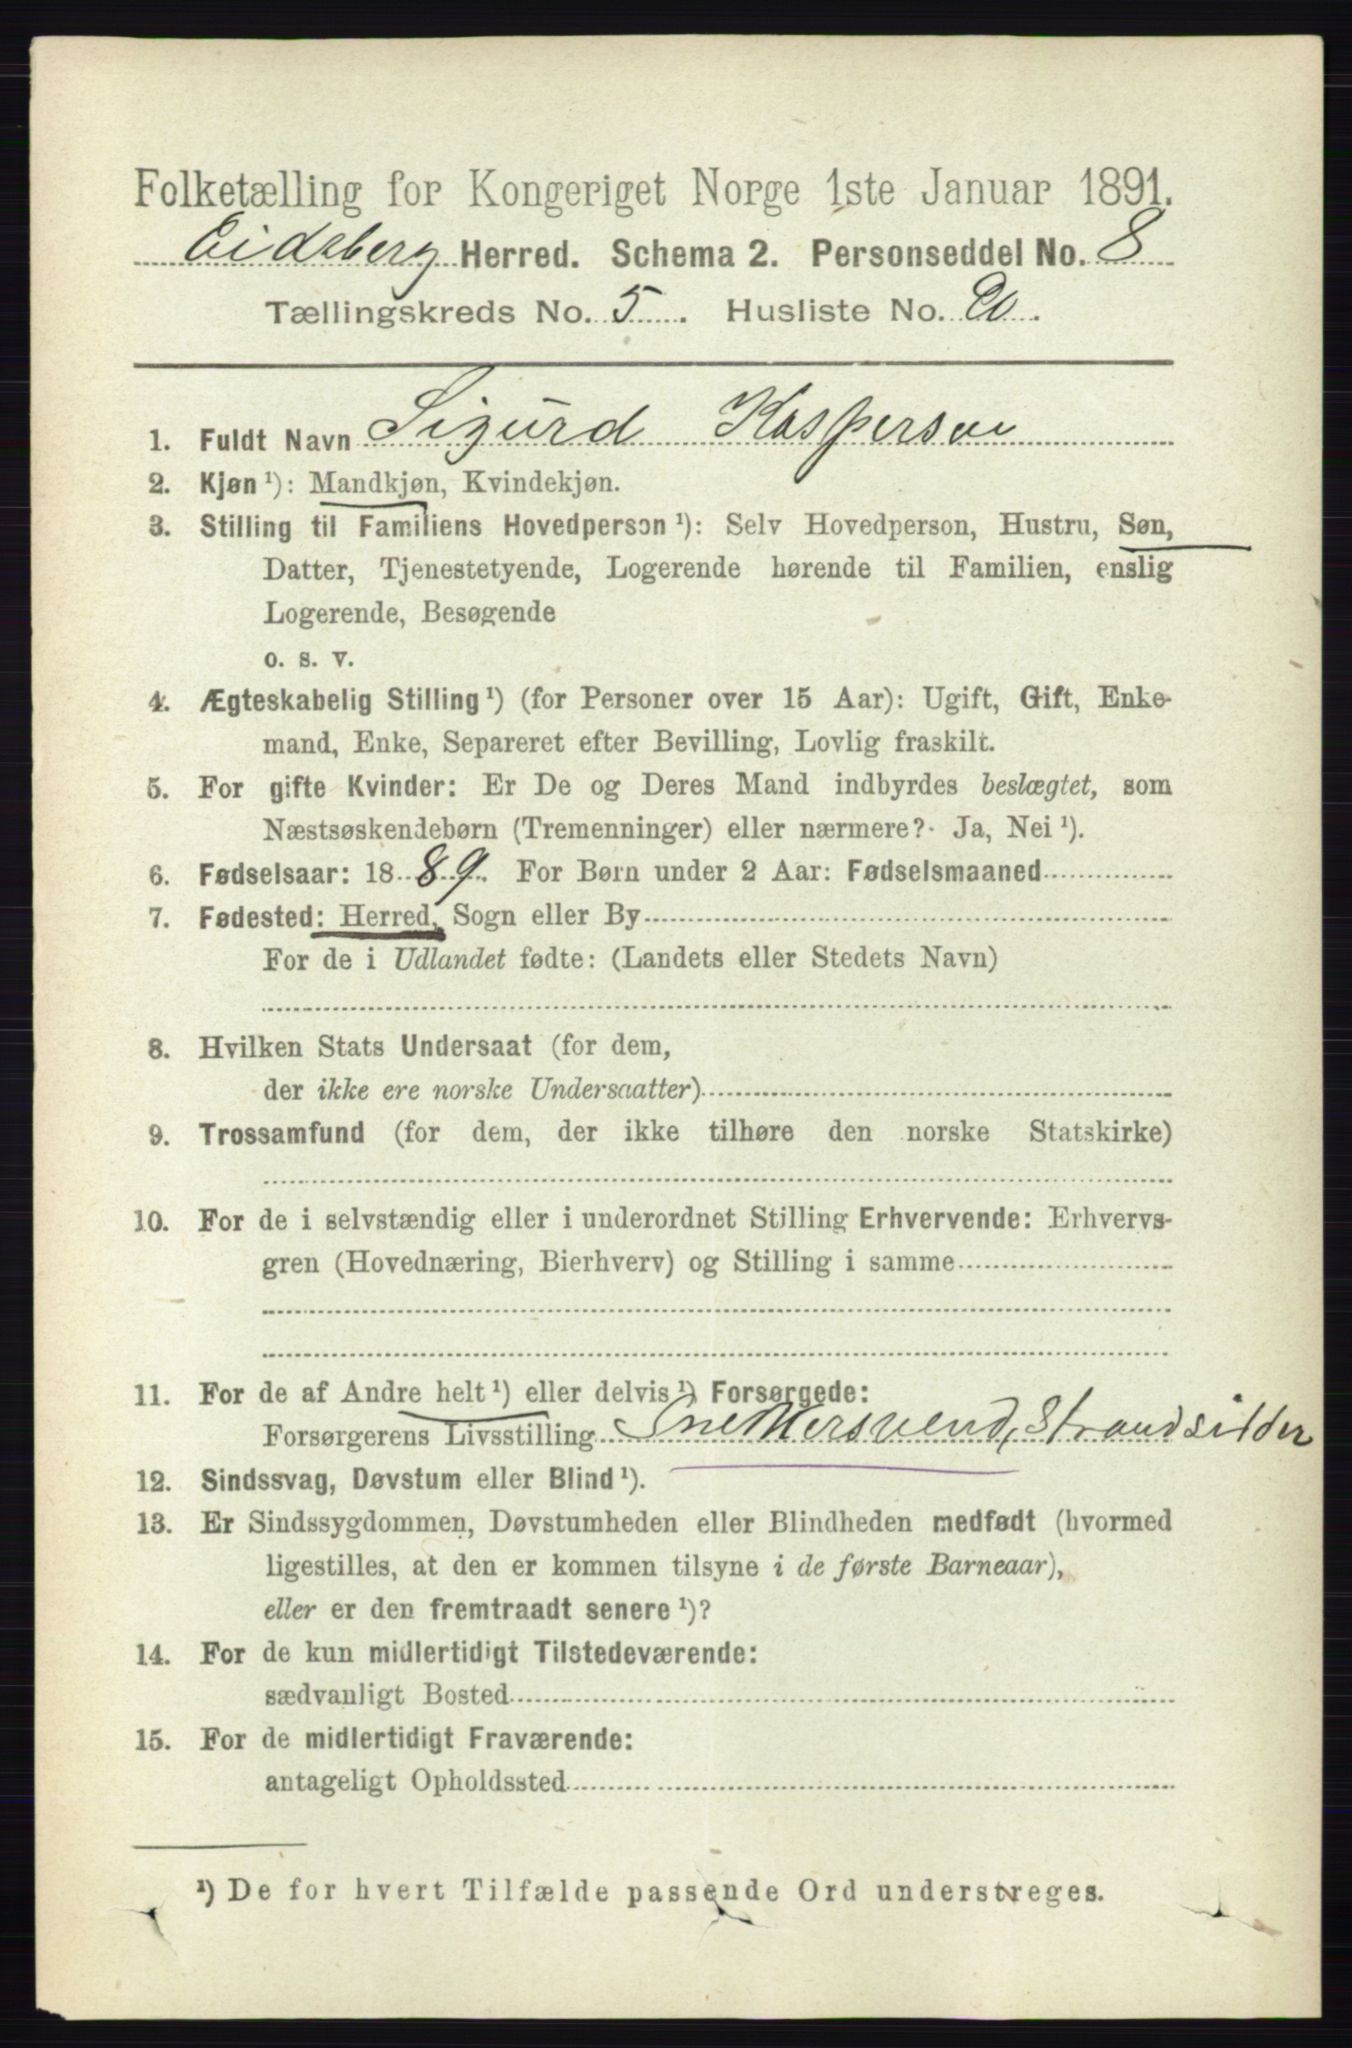 Folketælling for Kongeriget Norge 1ste Januar 1891.
Eidsberg Herred. Schema 2. Personseddel No. 8
Tællingskreds No. 5. Husliste No. 20.
1. Fuldt Navn Sigurd Kaspersen
2. Kjøn ¹): Mandkjøn, Kvindekjøn.
3. Stilling til Familiens Hovedperson ¹): Selv Hovedperson, Hustru, Søn,
Datter, Tjenestetyende, Logerende hørende til Familien, enslig
Logerende, Besøgende
o. s. v.
4. Ægteskabelig Stilling ¹) (for Personer over 15 Aar): Ugift, Gift, Enke-
mand, Enke, Separeret efter Bevilling, Lovlig fraskilt.
5. For gifte Kvinder: Er De og Deres Mand indbyrdes beslægtet, som
Næstsøskendebørn (Tremenninger) eller nærmere? Ja, Nei ¹).
6. Fødselsaar: 1889. For Børn under 2 Aar: Fødselsmaaned
7. Fødested: Herred, Sogn eller By
For de i Udlandet fødte: (Landets eller Stedets Navn)
8. Hvilken Stats Undersaat (for dem,
der ikke ere norske Undersaatter)
9. Trossamfund (for dem, der ikke tilhøre den norske Statskirke)
10. For de i selvstændig eller i underordnet Stilling Erhvervende: Erhvervs-
gren (Hovednæring, Bierhverv) og Stilling i samme
11. For de af Andre helt ¹) eller delvis ¹) Forsørgede:
Forsørgerens Livsstilling Snekkersvend, Strandsidder
12. Sindssvag, Døvstum eller Blind ¹).
13. Er Sindssygdommen, Døvstumheden eller Blindheden medfødt (hvormed
ligestilles, at den er kommen tilsyne i de første Barneaar),
eller er den fremtraadt senere ¹)?
14. For de kun midlertidigt Tilstedeværende:
sædvanligt Bosted
15. For de midlertidigt Fraværende:
antageligt Opholdssted
¹) De for hvert Tilfælde passende Ord understreges.